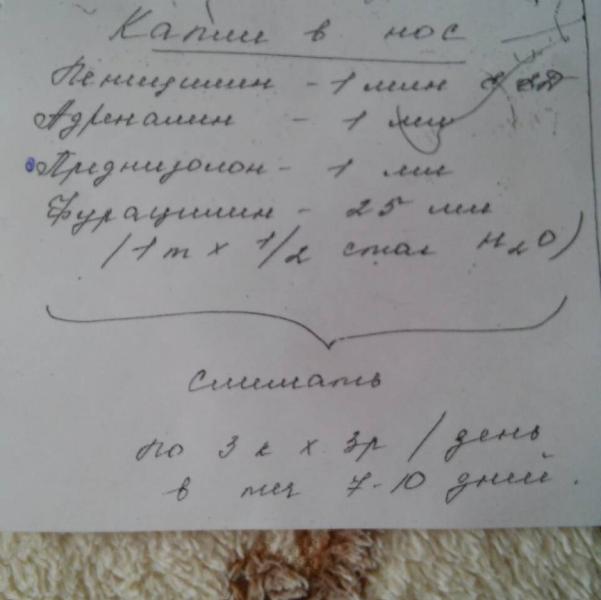 Капли в нос
Пенициллин - 1 млн ЕД
Адреналин - 1 мл
Преднизолон - 1 мл
Фурацилин - 25 мл
(1 т х 1/2 стак H2O)
смешать
по 3 к х 3р / день
в теч 7-10 дней.